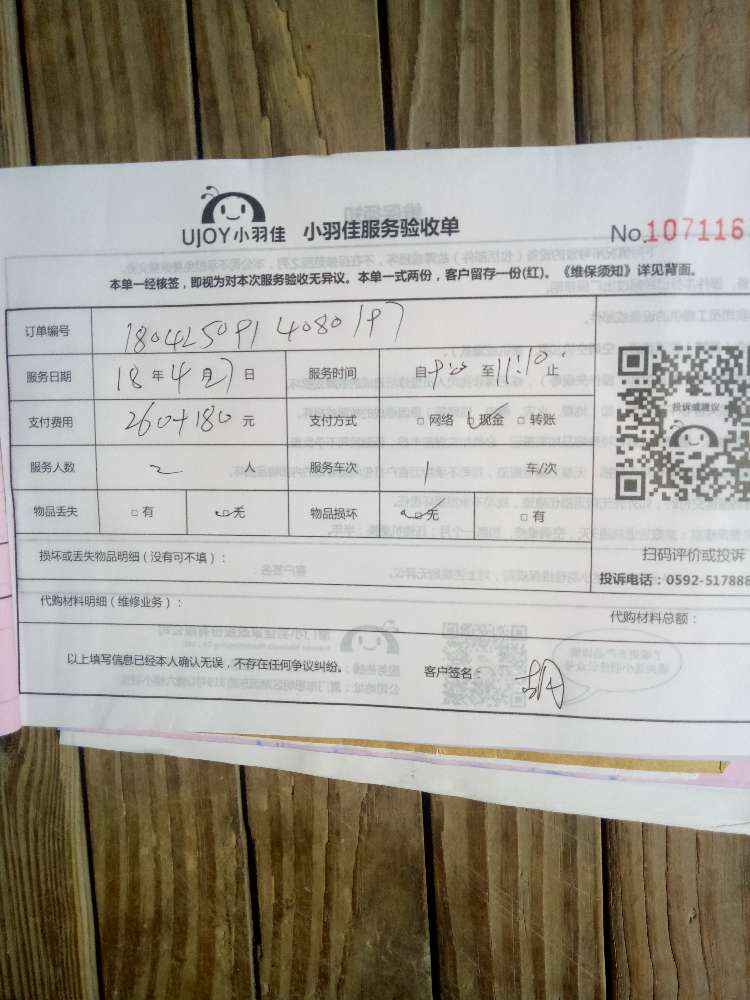 UJOY小羽佳 小羽佳服务验收单 No.107116
本单一经核签，即视为对本次服务验收无异议。本单一式两份，客户留存一份(红)。《维保须知》详见背面。
订单编号 1804250914080197
服务日期 18年4月27日 服务时间 自 至11:10止
支付费用 260+180元 支付方式 □网络 □现金 □转账
服务人数 2人 服务车次 1 车/次
物品丢失 □有 □无 物品损坏 □无 □有
投诉或建议
扫码评价或投诉
投诉电话：0592-517888
损坏或丢失物品明细（没有可不填）：
代购材料明细（维修业务）： 代购材料总额：
以上填写信息已经本人确认无误，不存在任何争议纠纷。 客户签名：